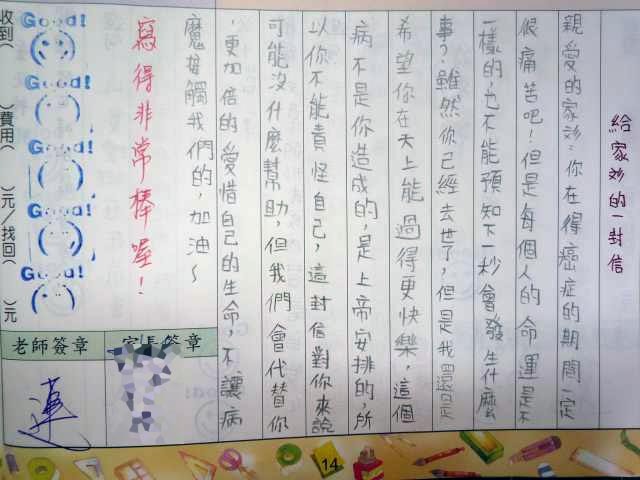 給家妙的一封信
親愛的家妙：你在得癌症的期間一定
很痛苦吧！但是每個人的命運是不
一樣的，也不能預知下一秒會發生什麼
事？雖然你已經去世了，但是我還是
希望你在天上能過得更快樂，這個
病不是你造成的，是上帝安排的所
以你不能責怪自己，這封信對你來說
可能沒什麼幫助，但我們會代替你
，更加倍的愛惜自己的生命，不讓病
魔接觸我們的，加油～
寫得非常棒喔！
Good!
Good!
Good!
Good!
Good!
收到（　）費用（　）元／找回（　）元
老師簽章
家長簽章
蓮
14